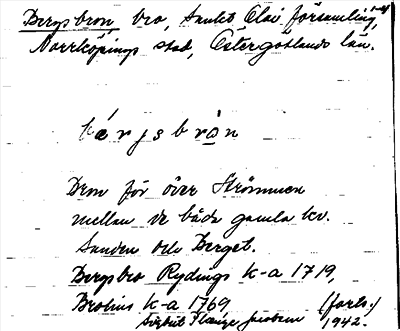 Bergsbron bro, Sankt Olai församling,
Norrköpings stad, Östergötlands län.
bärjsbrån
Bron för över Strömmen
mellan de båda gamla kv.
Sanden och Berget.
Bergsbro Rydings k-a 1719,
Brobius k-a 1769 (forts.)
Sigbrit Plænge Jacobson 1942.